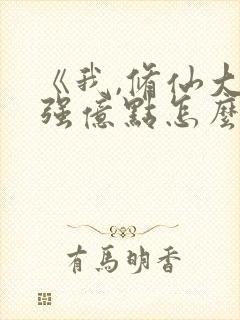 《我,脩仙大
强億點怎麼
有馬明香